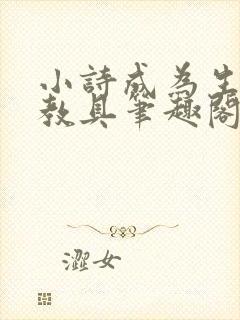 小詩成為生
教具筆趣閣
澀女